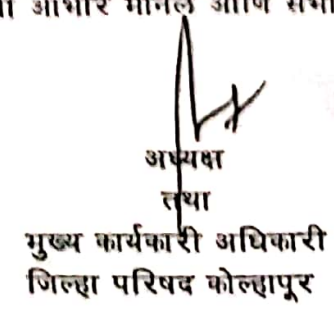 आभार मानले आणि सभा
अध्यक्ष
तथा
मुख्य कार्यकारी अधिकारी
जिल्हा परिषद कोल्हापूर